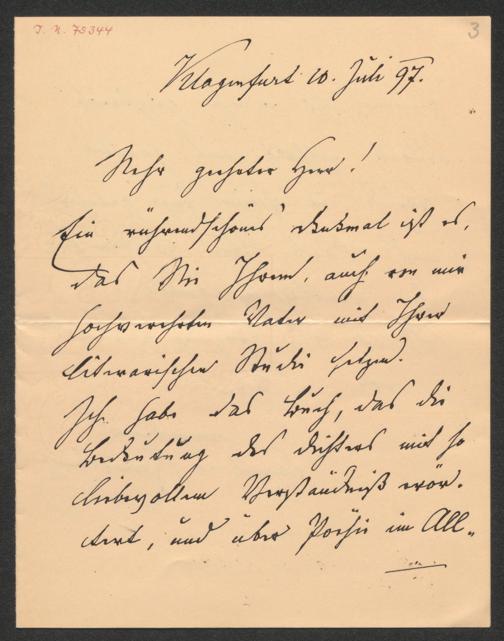 I. N. 79344
3
Klagenfurt 10. Juli 97.
Sehr geehrter Herr!
Ein rührendschönes Denkmal ist es,
das Sie Ihrem, auch von mir
hochverehrten Vater mit Ihrer
literarischen Studie setzen.
Ich habe das Buch, das die
Bedeutung des Dichters mit so
liebevollem Verständniß erör-
tert, und über Poesie im All-